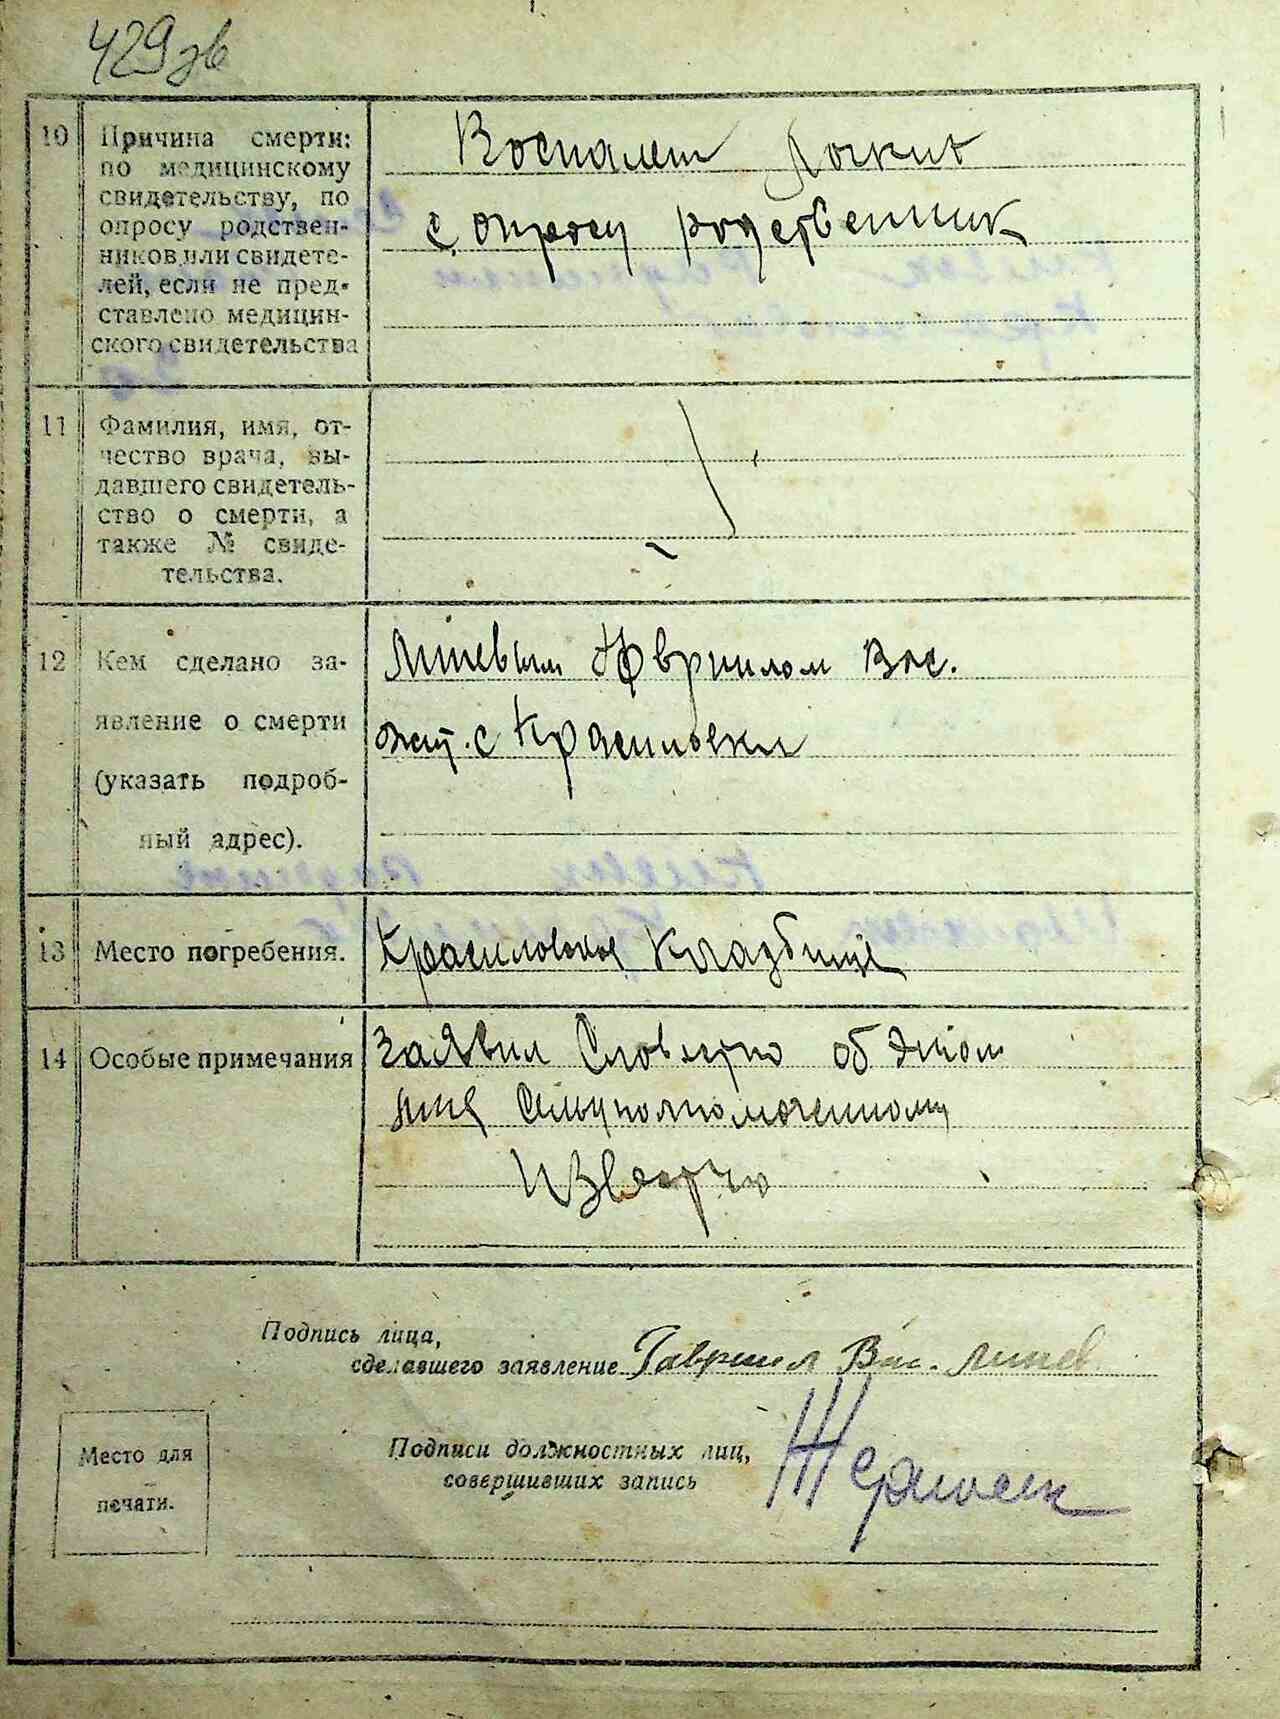 429 зв
10
Причина смерти:
по медицинскому
свидетельству, по
опросу родствен-
ников или свидете-
лей, если не пред-
ставлено медицин-
ского свидетельства
Воспалет
с опросу родственник
11
Фамилия, имя, от-
чество врача, вы-
давшего свидетель-
ство о смерти, а
также № свиде-
тельства.
12
Кем сделано за-
явление о смерти
(указать подроб-
ный адрес).
Гавриилом Вас.
жит. с Красиловки
13
Место погребения.
Красиловское Кладбище
14
Особые примечания
Заявил Словестно об этом
Подпись лица,
сделавшего заявление Гавриил Вас.
Подписи должностных лиц,
совершивших запись
Место для
печати.